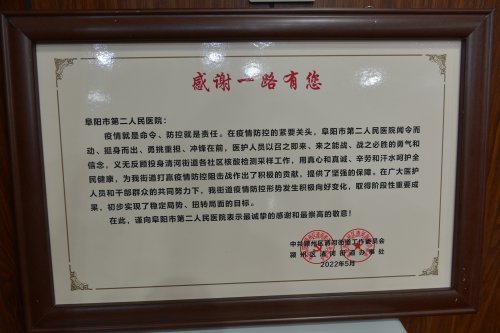 感谢一路有您
阜阳市第二人民医院：
疫情就是命令、防控就是责任。在疫情防控的紧要关头，阜阳市第二人民医院闻令而
动、挺身而出、勇挑重担、冲锋在前，医护人员以召之即来、来之能战、战之必胜的勇气和
信念，义无反顾投身清河街道各社区核酸检测采样工作，用真心和真诚、辛劳和汗水呵护全
民健康，为我街道打赢疫情防控阻击战作出了积极的贡献，提供了坚强的保障。在广大医护
人员和干部群众的共同努力下，我街道疫情防控形势发生积极向好变化，取得阶段性重要成
果，初步实现了稳定局势、扭转局面的目标。
在此，谨向阜阳市第二人民医院表示最诚挚的感谢和最崇高的敬意！
中共颍州区清河街道工作委员会
颍州区清河街道办事处
2022年5月